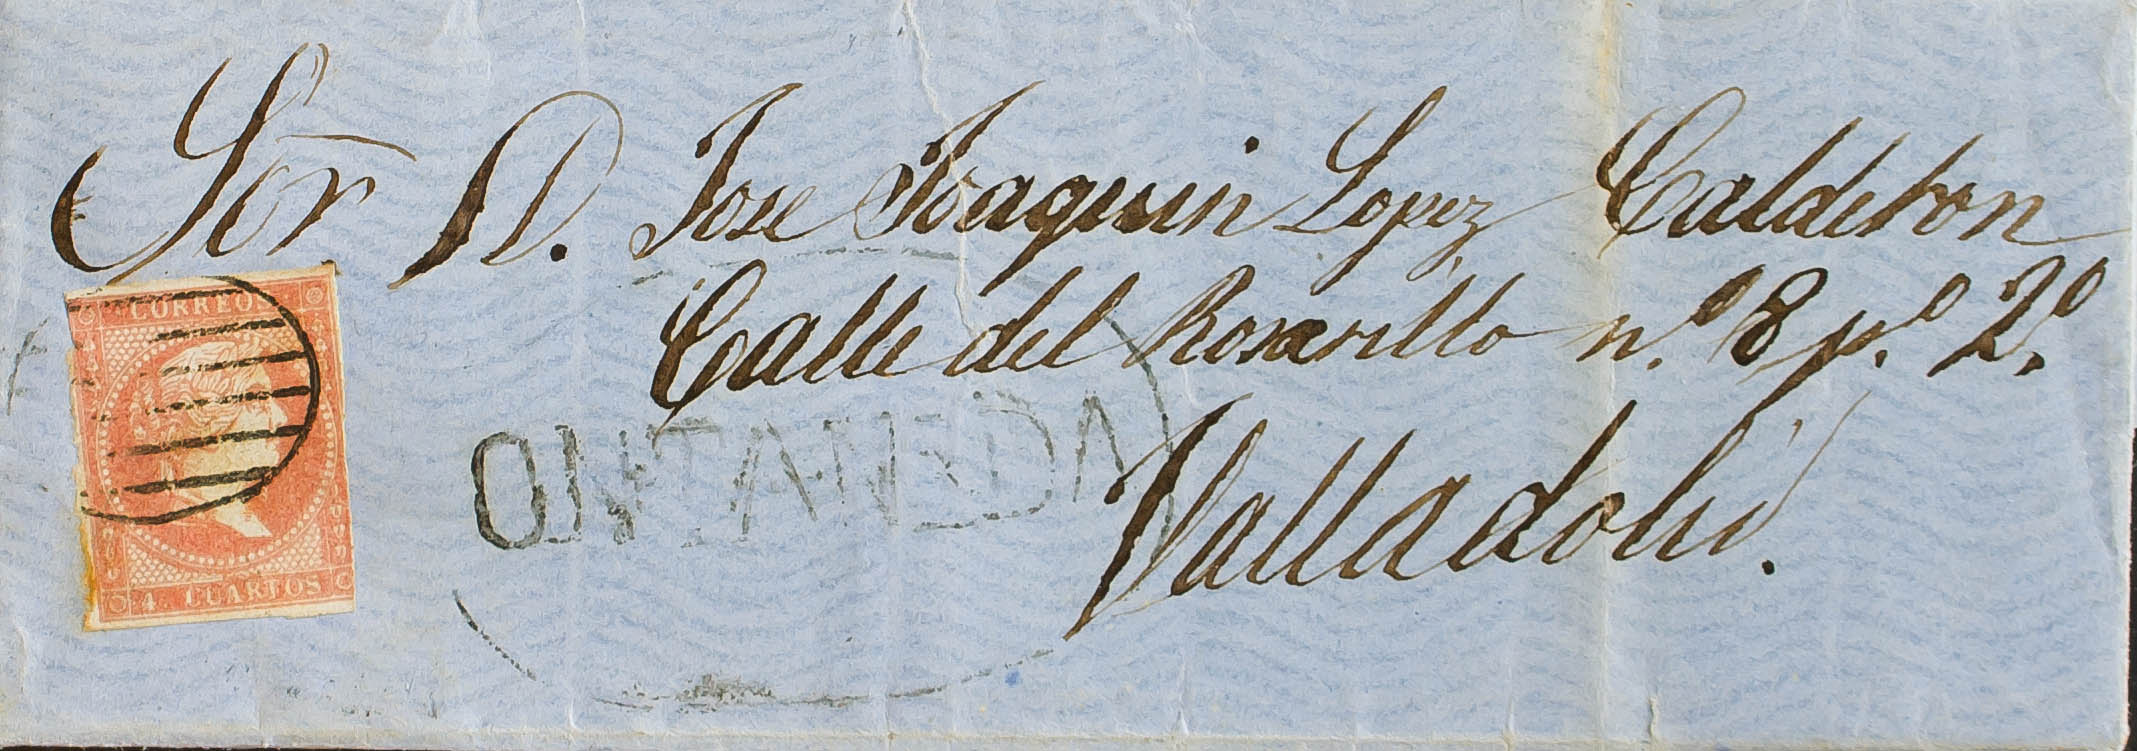 Sor D. Jose Joaquin Lopez Calderon
Calle del Rosarillo n.º 8 p.º 2.º
Valladolid.
CORREOS
4 CUARTOS
ONTANEDA